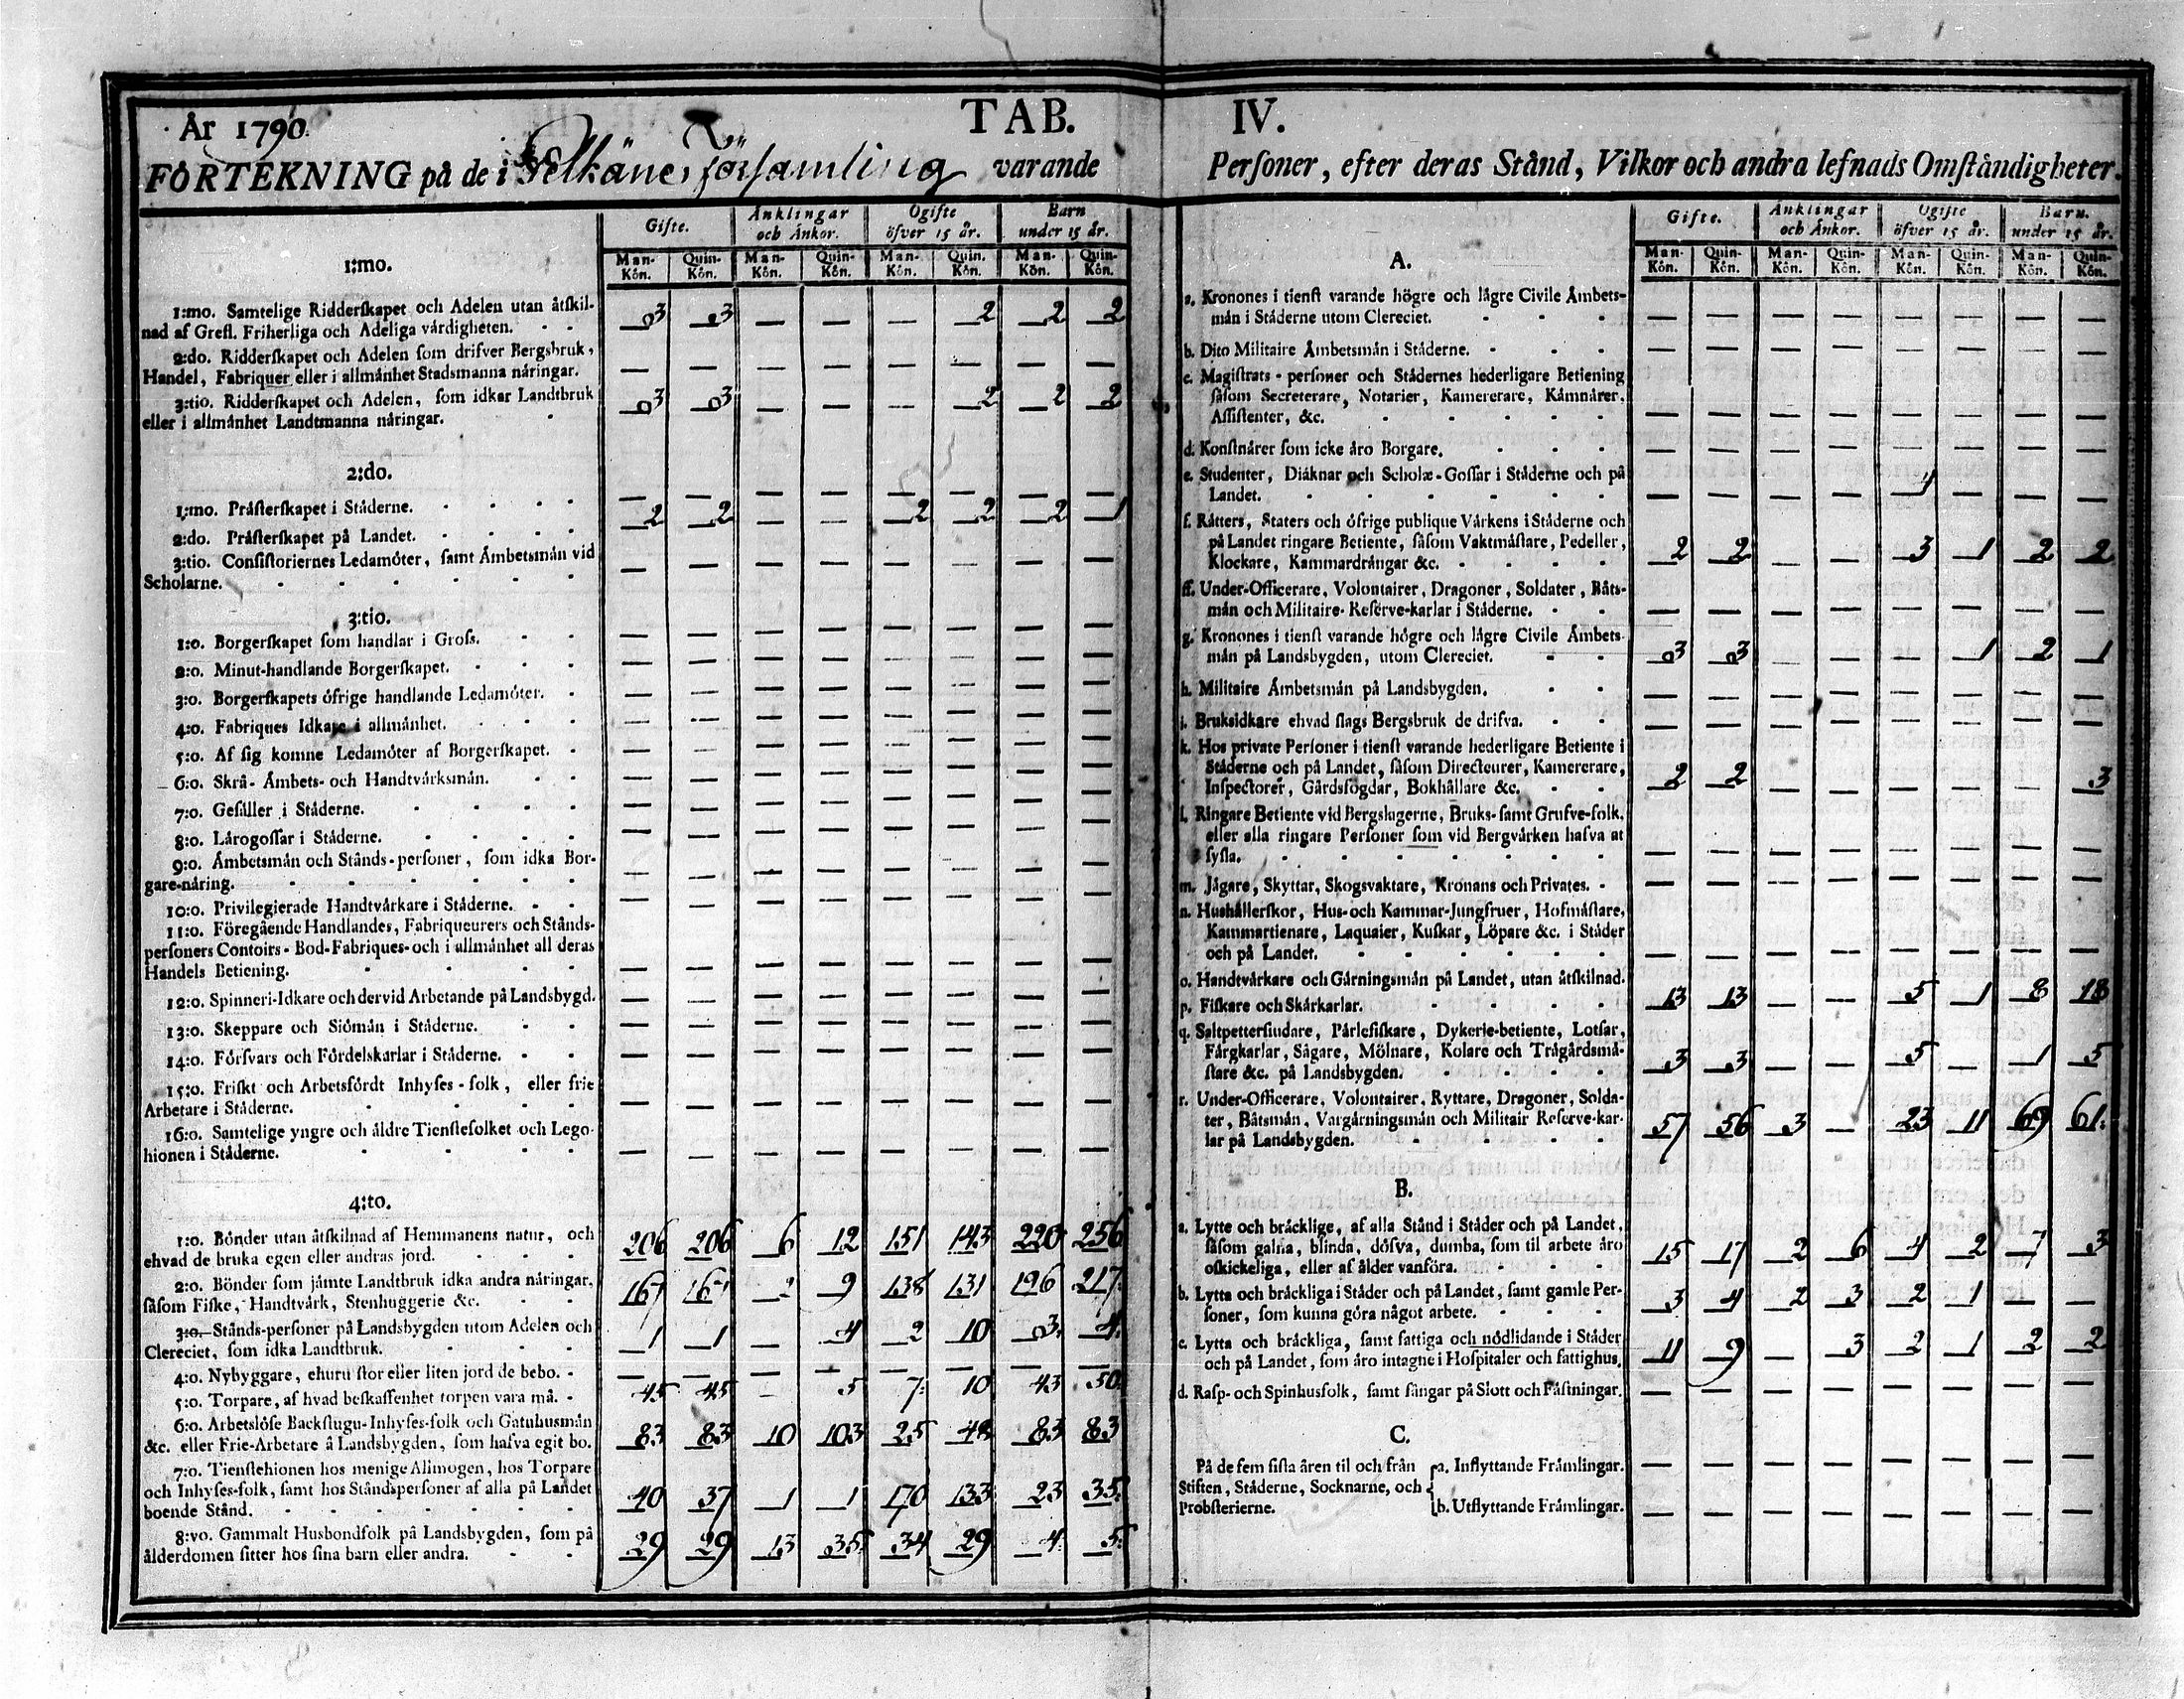 År 1790.
TAB. IV.
FÖRTEKNING på de i Pelkäne församling varande Personer, efter deras Stånd, Vilkor och andra lefnads Omständigheter.
Gifte. Änklingar och Änkor. Ogifte öfver 15 år. Barn under 15 år.
Man-Kön. Quin-Kön. Man-Kön. Quin-Kön. Man-Kön. Quin-Kön. Man-Kön. Quin-Kön.
1:mo.
1:mo. Samtelige Ridderskapet och Adelen utan åtskil-
nad af Grefl. Friherliga och Adeliga värdigheten. 3 3 — — — 2 2 2
2:do. Ridderskapet och Adelen som drifver Bergsbruk,
Handel, Fabriquer eller i allmänhet Stadsmanna näringar. — — — — — — — —
3:tio. Ridderskapet och Adelen, som idkar Landtbruk 3 3 — — — 2 2 2
eller i allmänhet Landtmanna näringar.
2:do.
1:mo. Prästerskapet i Städerne. — — — — — — — —
2:do. Prästerskapet på Landet. 2 2 — — 2 2 2 1
3:tio. Consistoriernes Ledamöter, samt Ämbetsmän vid
Scholarne. — — — — — — — —
3:tio.
1:o. Borgerskapet som handlar i Gross. — — — — — — — —
2:o. Minut-handlande Borgerskapet. — — — — — — — —
3:o. Borgerskapets öfrige handlande Ledamöter. — — — — — — — —
4:o. Fabriques Idkare i allmänhet. — — — — — — — —
5:o. Af sig komne Ledamöter af Borgerskapet. — — — — — — — —
6:o. Skrå- Ämbets- och Handtvärksmän. — — — — — — — —
7:o. Gesäller i Städerne. — — — — — — — —
8:o. Lärogossar i Städerne. — — — — — — — —
9:o. Ämbetsmän och Stånds-personer, som idka Bor-
gare-näring. — — — — — — — —
10:o. Privilegierade Handtvärkare i Städerne. — — — — — — — —
11:o. Föregående Handlandes, Fabriqueurers och Stånds-
personers Contoirs- Bod-Fabriques- och i allmänhet all deras
Handels Betiening. — — — — — — — —
12:o. Spinneri-Idkare och dervid Arbetande på Landsbygd. — — — — — — — —
13:o. Skeppare och Siömän i Städerne. — — — — — — — —
14:o. Försvars och Fördelskarlar i Städerne. — — — — — — — —
15:o. Friskt och Arbetsfördt Inhyses-folk, eller frie
Arbetare i Städerne. — — — — — — — —
16:o. Samtelige yngre och äldre Tienstefolket och Lego-
hionen i Städerne. — — — — — — — —
4:to.
1:o. Bönder utan åtskilnad af Hemmanens natur, och
ehvad de bruka egen eller andras jord. 206 206 6 12 151 143 220 256
2:o. Bönder som jämte Landtbruk idka andra näringar,
såsom Fiske, Handtvärk, Stenhuggerie &c. 167 167 2 9 138 131 196 217
3:o. Stånds-personer på Landsbygden utom Adelen och
Clereciet, som idka Landtbruk. 1 1 — 4 2 10 3 4
4:o. Nybyggare, ehuru stor eller liten jord de bebo. — — — — — — — —
5:o. Torpare, af hvad beskaffenhet torpen vara må. 45 45 — 5 7 10 43 50
6:o. Arbetslöse Backstugu-Inhyses-folk och Gatuhusmän
&c. eller Frie-Arbetare å Landsbygden, som hafva egit bo. 83 83 10 103 25 48 83 83
7:o. Tienstehionen hos menige Allmogen, hos Torpare
och Inhyses-folk, samt hos Ståndspersoner af alla på Landet
boende Stånd. 40 37 1 1 170 133 23 35
8:vo. Gammalt Husbondfolk på Landsbygden, som på
ålderdomen sitter hos sina barn eller andra. 29 29 13 35 34 29 4 5
Gifte. Änklingar och Änkor. Ogifte öfver 15 år. Barn. under 15 år.
Man-Kön. Quin-Kön. Man-Kön. Quin-Kön. Man-Kön. Quin-Kön. Man-Kön. Quin-Kön.
A.
a. Kronones i tienst varande högre och lägre Civile Ämbets-
män i Städerne utom Clereciet. — — — — — — — —
b. Dito Militaire Ämbetsmän i Städerne. — — — — — — — —
c. Magistrats-personer och Städernes hederligare Betiening
såsom Secreterare, Notarier, Kamererare, Kämnärer,
Assistenter, &c. — — — — — — — —
d. Konstnärer som icke äro Borgare. — — — — — — — —
e. Studenter, Diäknar och Scholæ-Gossar i Städerne och på
Landet. — — — — 1 — — —
f. Rätters, Staters och öfrige publique Värkens i Städerne och
på Landet ringare Betiente, såsom Vaktmästare, Pedeller,
Klockare, Kammardrängar &c. 2 2 — — 3 1 2 2
ff. Under-Officerare, Volontairer, Dragoner, Soldater, Båts-
män och Militaire-Reserve-karlar i Städerne. — — — — — — — —
g. Kronones i tienst varande högre och lägre Civile Ämbets-
män på Landsbygden, utom Clereciet. 3 3 — — — 1 2 1
h. Militaire Ämbetsmän på Landsbygden. — — — — — — — —
i. Bruksidkare ehvad slags Bergsbruk de drifva. — — — — — — — —
k. Hos private Personer i tienst varande hederligare Betiente i
Städerne och på Landet, såsom Directeurer, Kamererare,
Inspectorer, Gårdsfogdar, Bokhållare &c. 2 2 — — — — — 3
l. Ringare Betiente vid Bergslagerne, Bruks- samt Grufve-folk,
eller alla ringare Personer som vid Bergvärken hafva at
sysla. — — — — — — — —
m. Jägare, Skyttar, Skogsvaktare, Kronans och Privates. — — — — — — — —
n. Hushållerskor, Hus- och Kammar-Jungfruer, Hofmästare,
Kammartienare, Laquaier, Kuskar, Löpare &c. i Städer
och på Landet. — — — — — — — —
o. Handtvärkare och Gärningsmän på Landet, utan åtskilnad. 13 13 — — 5 1 8 18
p. Fiskare och Skärkarlar.
q. Saltpettersiudare, Pärlefiskare, Dykerie-betiente, Lotsar,
Färgkarlar, Sågare, Mölnare, Kolare och Trägårdsmä-
stare &c. på Landsbygden. 3 3 — — 5 — 1 5
r. Under-Officerare, Volontairer, Ryttare, Dragoner, Solda-
ter, Båtsmän, Vargärningsmän och Militair Reserve-kar-
lar på Landsbygden. 57 56 3 — 23 11 69 61
B.
a. Lytte och bräcklige, af alla Stånd i Städer och på Landet,
såsom galna, blinda, döfva, dumba, som til arbete äro
oskickeliga, eller af ålder vanföra. 15 17 2 6 4 2 7 3
b. Lytta och bräckliga i Städer och på Landet, samt gamle Per-
soner, som kunna göra något arbete. 3 4 2 3 2 1 — —
c. Lytta och bräckliga, samt fattiga och nödlidande i Städer
och på Landet, som äro intagne i Hospitaler och fattighus. 11 9 — 3 2 1 2 2
d. Rasp- och Spinhusfolk, samt fångar på Slott och Fästningar. — — — — — — — —
C.
På de fem sista åren til och från
Stiften, Städerne, Socknarne, och
Probsterierne.
a. Inflyttande Främlingar. — — — — — — — —
b. Utflyttande Främlingar. — — — — — — — —